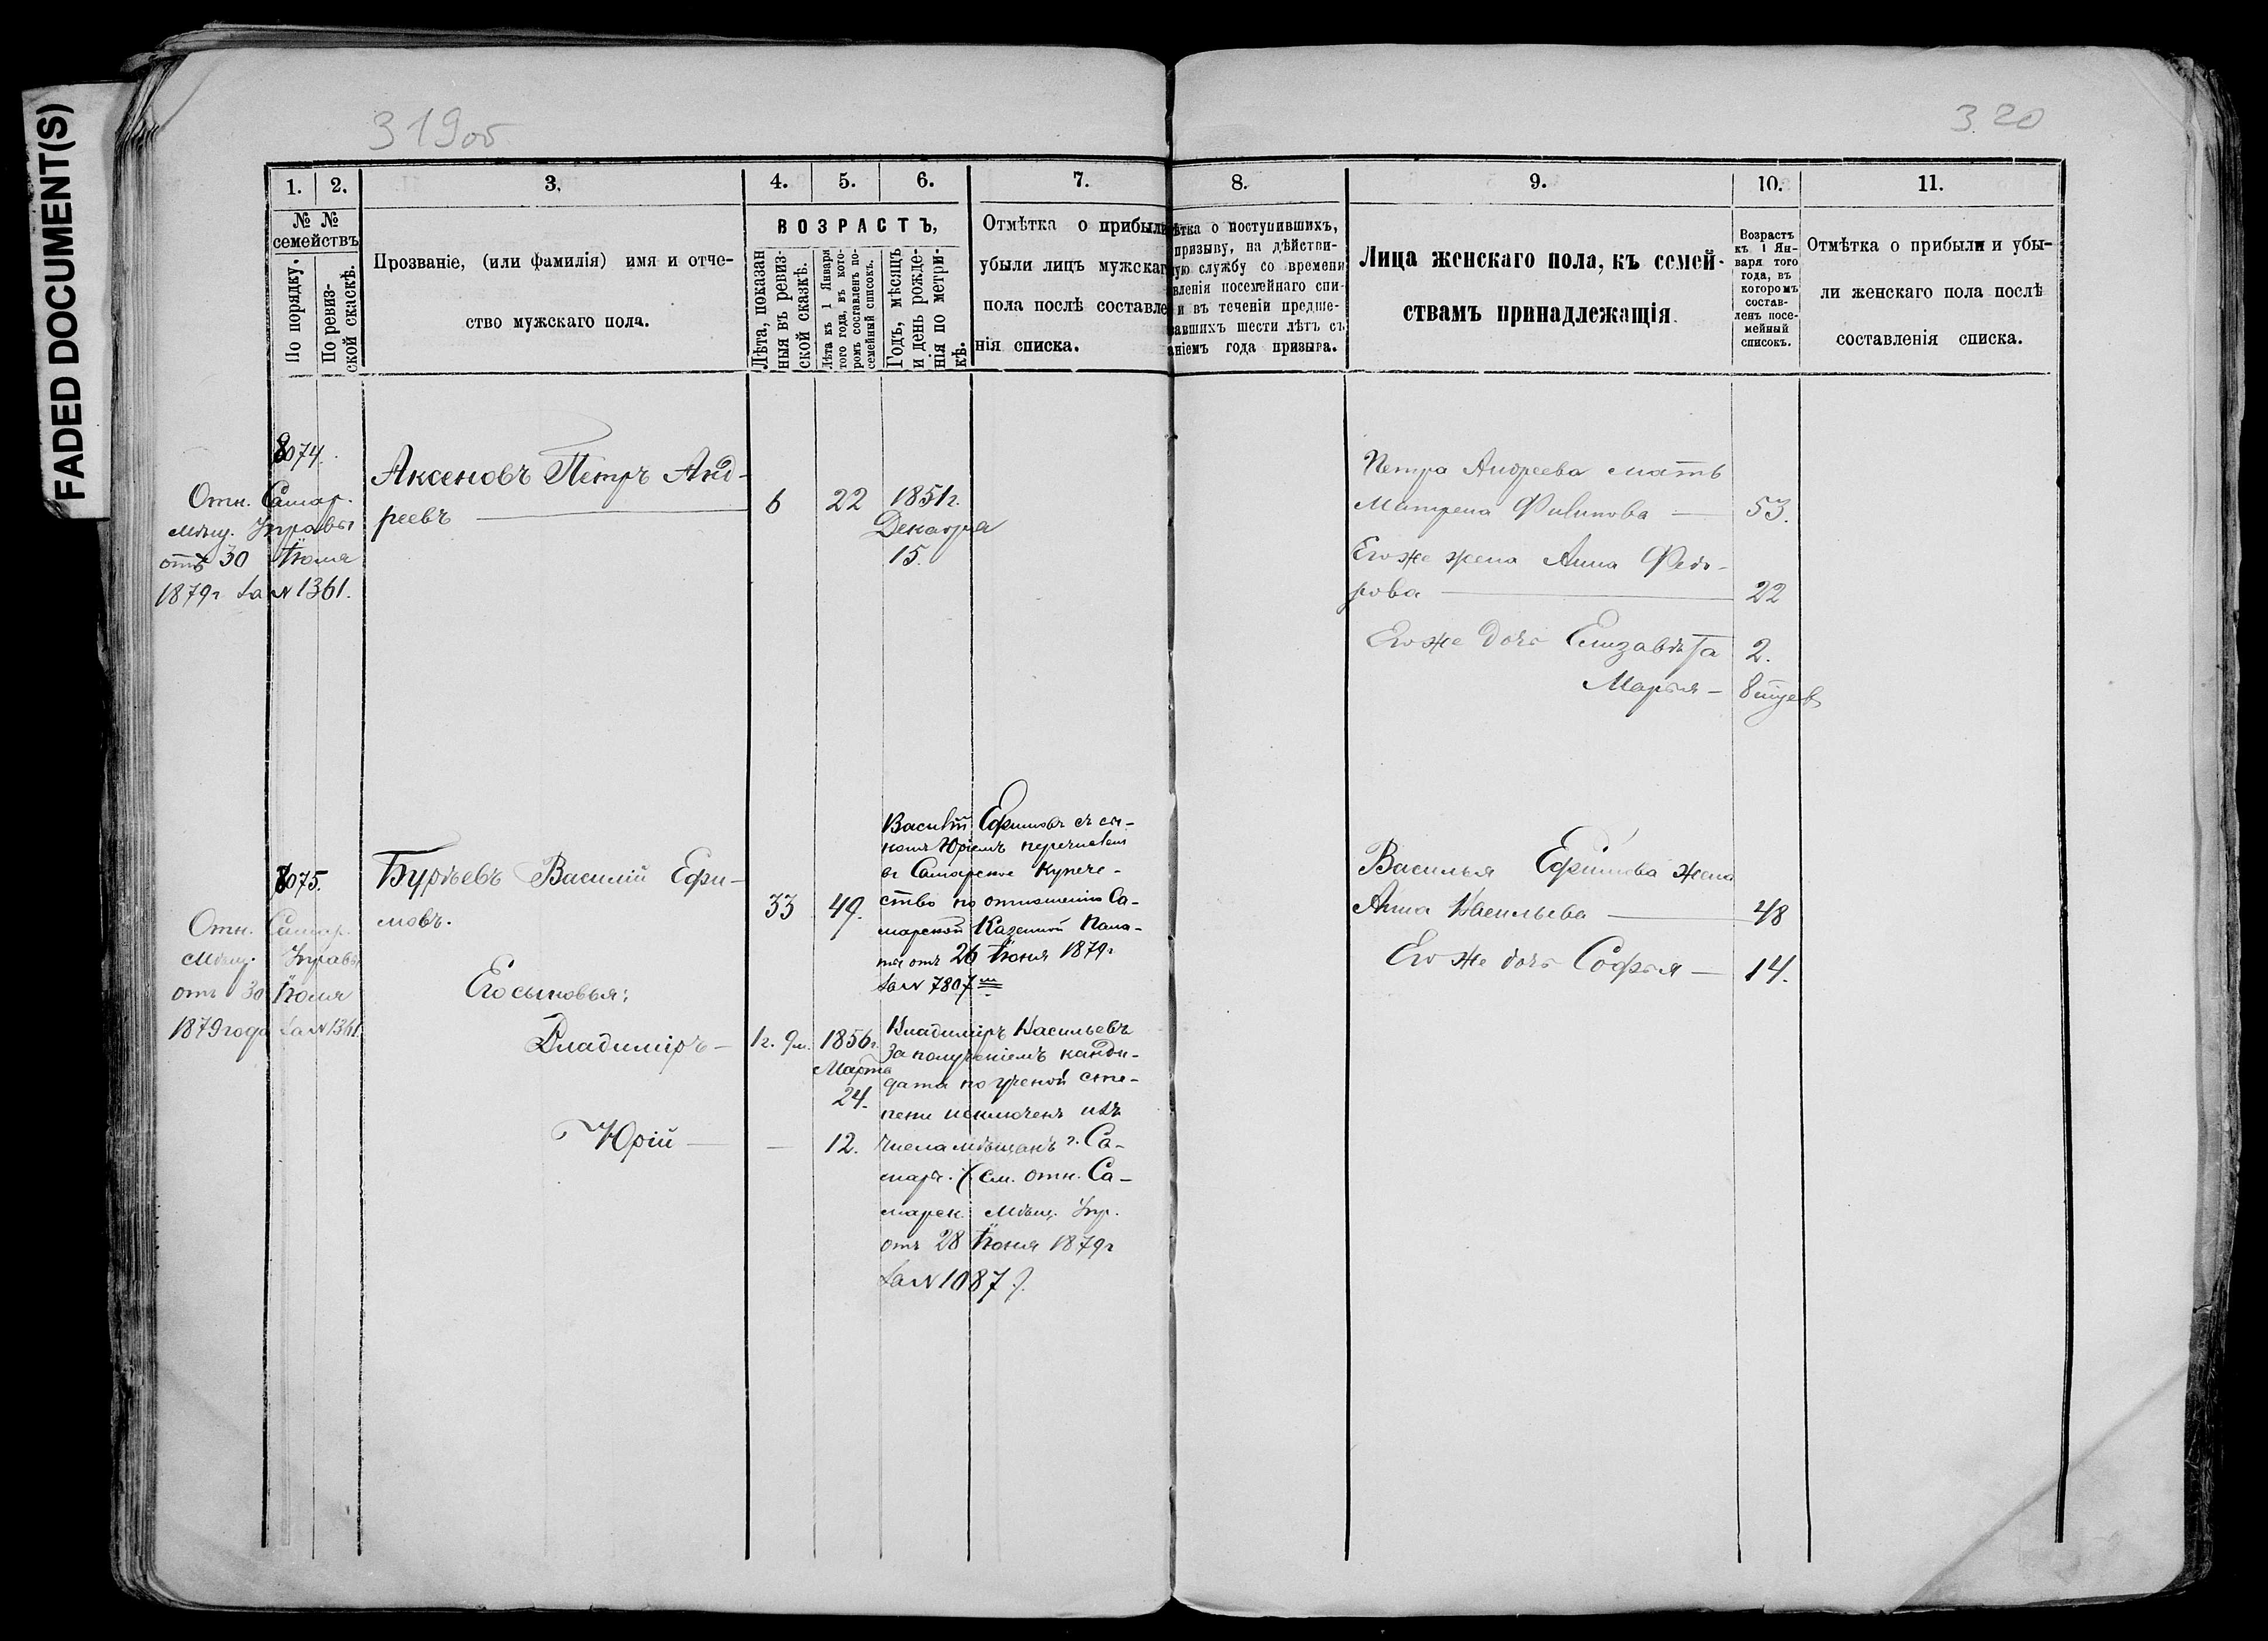 FADED DOCUMENT(S)
319об
320
1. 2. 3. 4. 5. 6. 7.
№ №
семействъ
По порядку.
По ревиз-
ской сказкѣ.
Прозваніе, (или фамилія) имя и отче-
ство мужскаго пола.
ВОЗРАСТЪ,
Лѣта, показан
ныя въ ревиз-
ской сказкѣ.
Лѣта къ 1 Января
того года, въ кото-
ромъ составленъ по-
семейный списокъ.
Годъ, мѣсяцъ
и день рожде-
нія по метри-
кѣ.
Отмѣтка о прибыли
убыли лицъ мужскаг
пола послѣ составле
нія списка.
8. 9. 10. 11.
ѣтка о поступившихъ,
призыву, на дѣйстви-
ую службу со времени
вленія посемейнаго спи-
и въ теченіи предше-
вавшихъ шести лѣтъ съ
аніемъ года призыва.
Лица женскаго пола, къ семей-
ствамъ принадлежащія.
Возрастъ
къ 1 Ян-
варя того
года, въ
которомъ
состав-
ленъ посе-
мейный
списокъ.
Отмѣтка о прибыли и убы-
ли женскаго пола послѣ
составленія списка.
8074.
Отн. Самар.
мѣщ. Управы
отъ 30 Іюля
1879г за № 1361.
Аксеновъ Петръ Анд-
реевъ
6 22 1851г.
Декабря
15.
Петра Андреева мать
Матрена Филипова 53.
Его же жена Анна Федо-
рова 22
Его же дочь Елизавѣта 2.
Марья
8075.
Отн. Самар.
мѣщ. Управы
отъ 30 Іюля
1879года за № 1361
Бурьевъ Василій Ефи-
мовъ.
33 49.
Его сыновья:
Владиміръ 1г. 9м. 1856г.
Марта
24.
Юрій 12.
Василій Ефимовъ съ сы-
номъ Юріемъ перечислен
въ Самарское купече-
ство по отношенію Са-
марской Казенной Пала-
ты отъ 26 Іюня 1879г
за № 7807
Владиміръ Васильевъ
за полученіемъ канди-
дата по ученой сте-
пени исключенъ изъ
числа мѣщанъ г. Са-
мары. (см. отн. Са-
марск. Мѣщ. Упр.
отъ 28 Іюня 1879г
за № 1087).
Василья Ефимова жена
Анна Васильева 48
Его же дочь Софья 14.